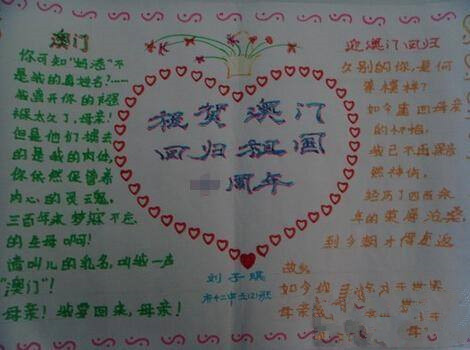 澳门
你可知"妈港"不
是我的真姓名?……
我离开你的襁
褓太久了,母亲!
但是他们掳去
的是我的肉体,
你依然保管着
内心的灵魂,
三百年来梦寐不忘
的生母啊!
请叫儿的乳名,叫我一声
"澳门"!
母亲! 我要回来,母亲!
祝贺澳门
回归祖国
周年
刘子琪
市十二中五(2)班
迎澳门回归
久别的你,是何
等模样?
如今重回母亲
的怀抱,
我已不再黯
然神伤,
经历了四百余
年的沧桑
到今朝才得复返
故乡
如今你
母亲